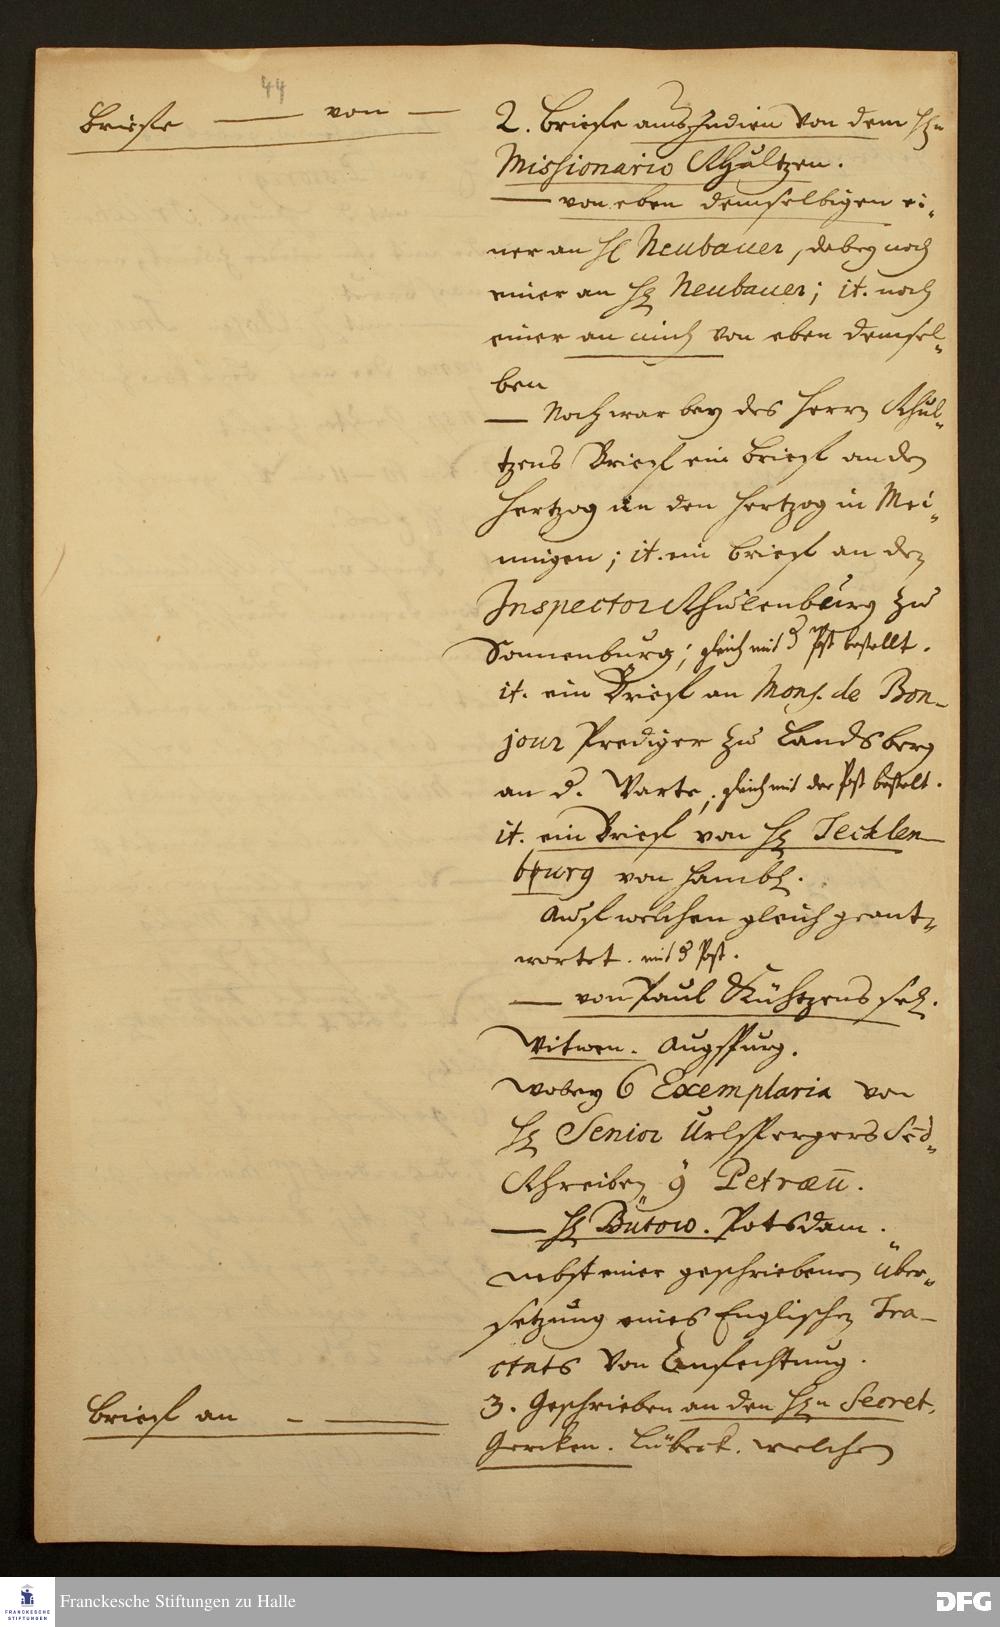 44
Briefe — von —
2. Briefe aus Indien von dem Hn
Missionario Schultzen.
— von eben demselbigen ei-
ner an H. Neubauer, dabey noch
einer an H. Neubauer; it. noch
einer an mich von eben demsel-
ben
— Noch war bey des Herrn Schul-
tzens Brief ein Brief an den
Hertzog in den Hertzog in Mei-
ningen; it. ein Brief an den
Inspector Schulenburg zu
Sonnenburg; gleich mit d Post bestellt.
it. ein Brief an Mons. de Bon-
jour Prediger zu Landsberg
an d. Warte, gleich mit der Post bestelt.
it. ein Brief von H. Tecklen-
burg von Hamb.
Auf welchen gleich geant-
wortet. mit d Post.
— von Paul sel.
Witwen. Augspurg.
wobey 6 Exemplaria von
H. Senior Urlspergers Send-
Schreiben
— H. Bütow. Potsdam.
nebst einer geschriebenen Über-
setzung eines Englischen Tra-
ctats von Anfechtung.
Brief an - —
3. Geschrieben an den Hn Secret.
Gercken. Lübeck. welchen
Franckesche Stiftungen zu Halle
FRANCKESCHE
STIFTUNGEN
DFG